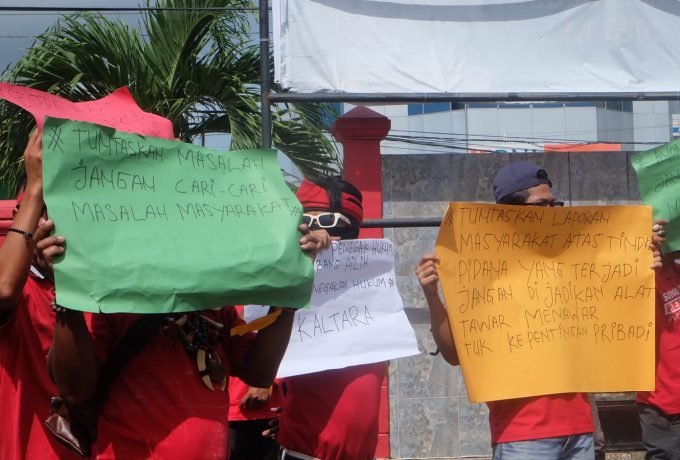 # TUNTASKAN MASALAH
JANGAN CARI-CARI
MASALAH MASYARAKAT #
PENEGAK HUKUM
BANG PILIH
NEGAKAN HUKUM #
KALTARA
# TUNTASKAN LAPORAN
MASYARAKAT ATAS TINDA
DIDANA YANG TERJADI
JANGAN DI JADIKAN ALAT
TAWAR MENAWAR
TUK KEPENTINGAN PRIBADI